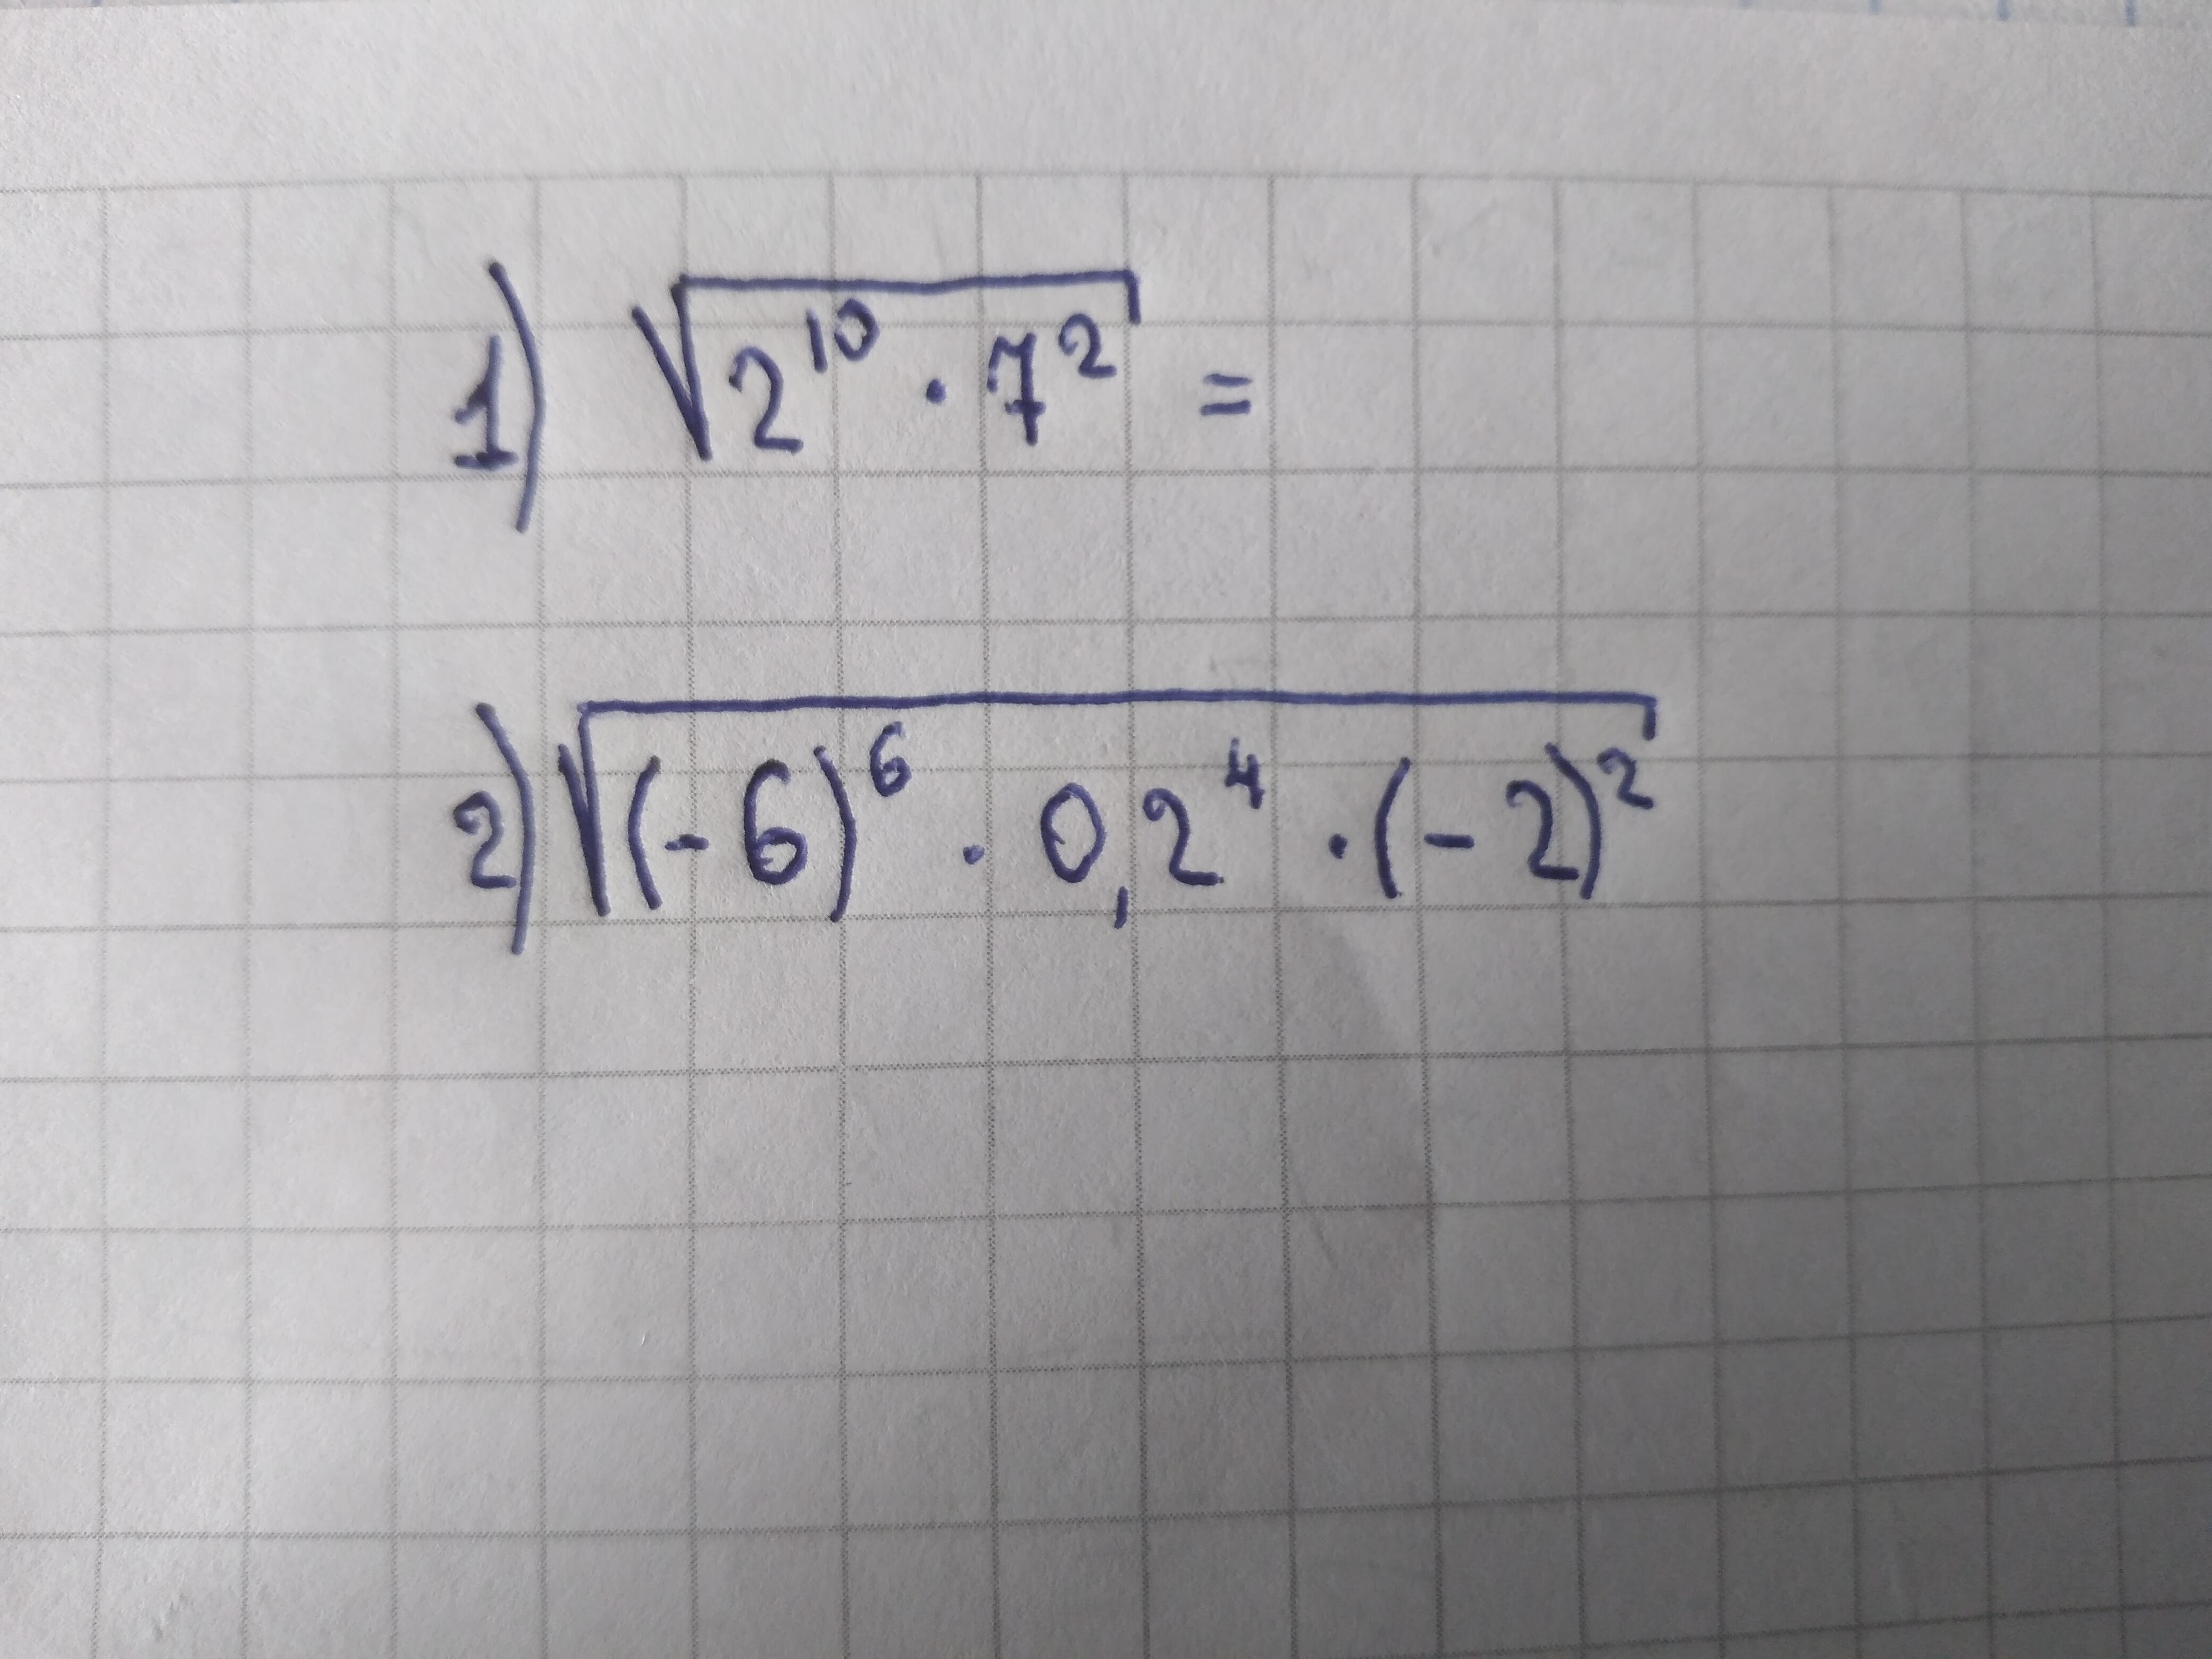 1) √2¹⁰ · 7² =
2) √(-6)⁶ · 0,2⁴ · (-2)²